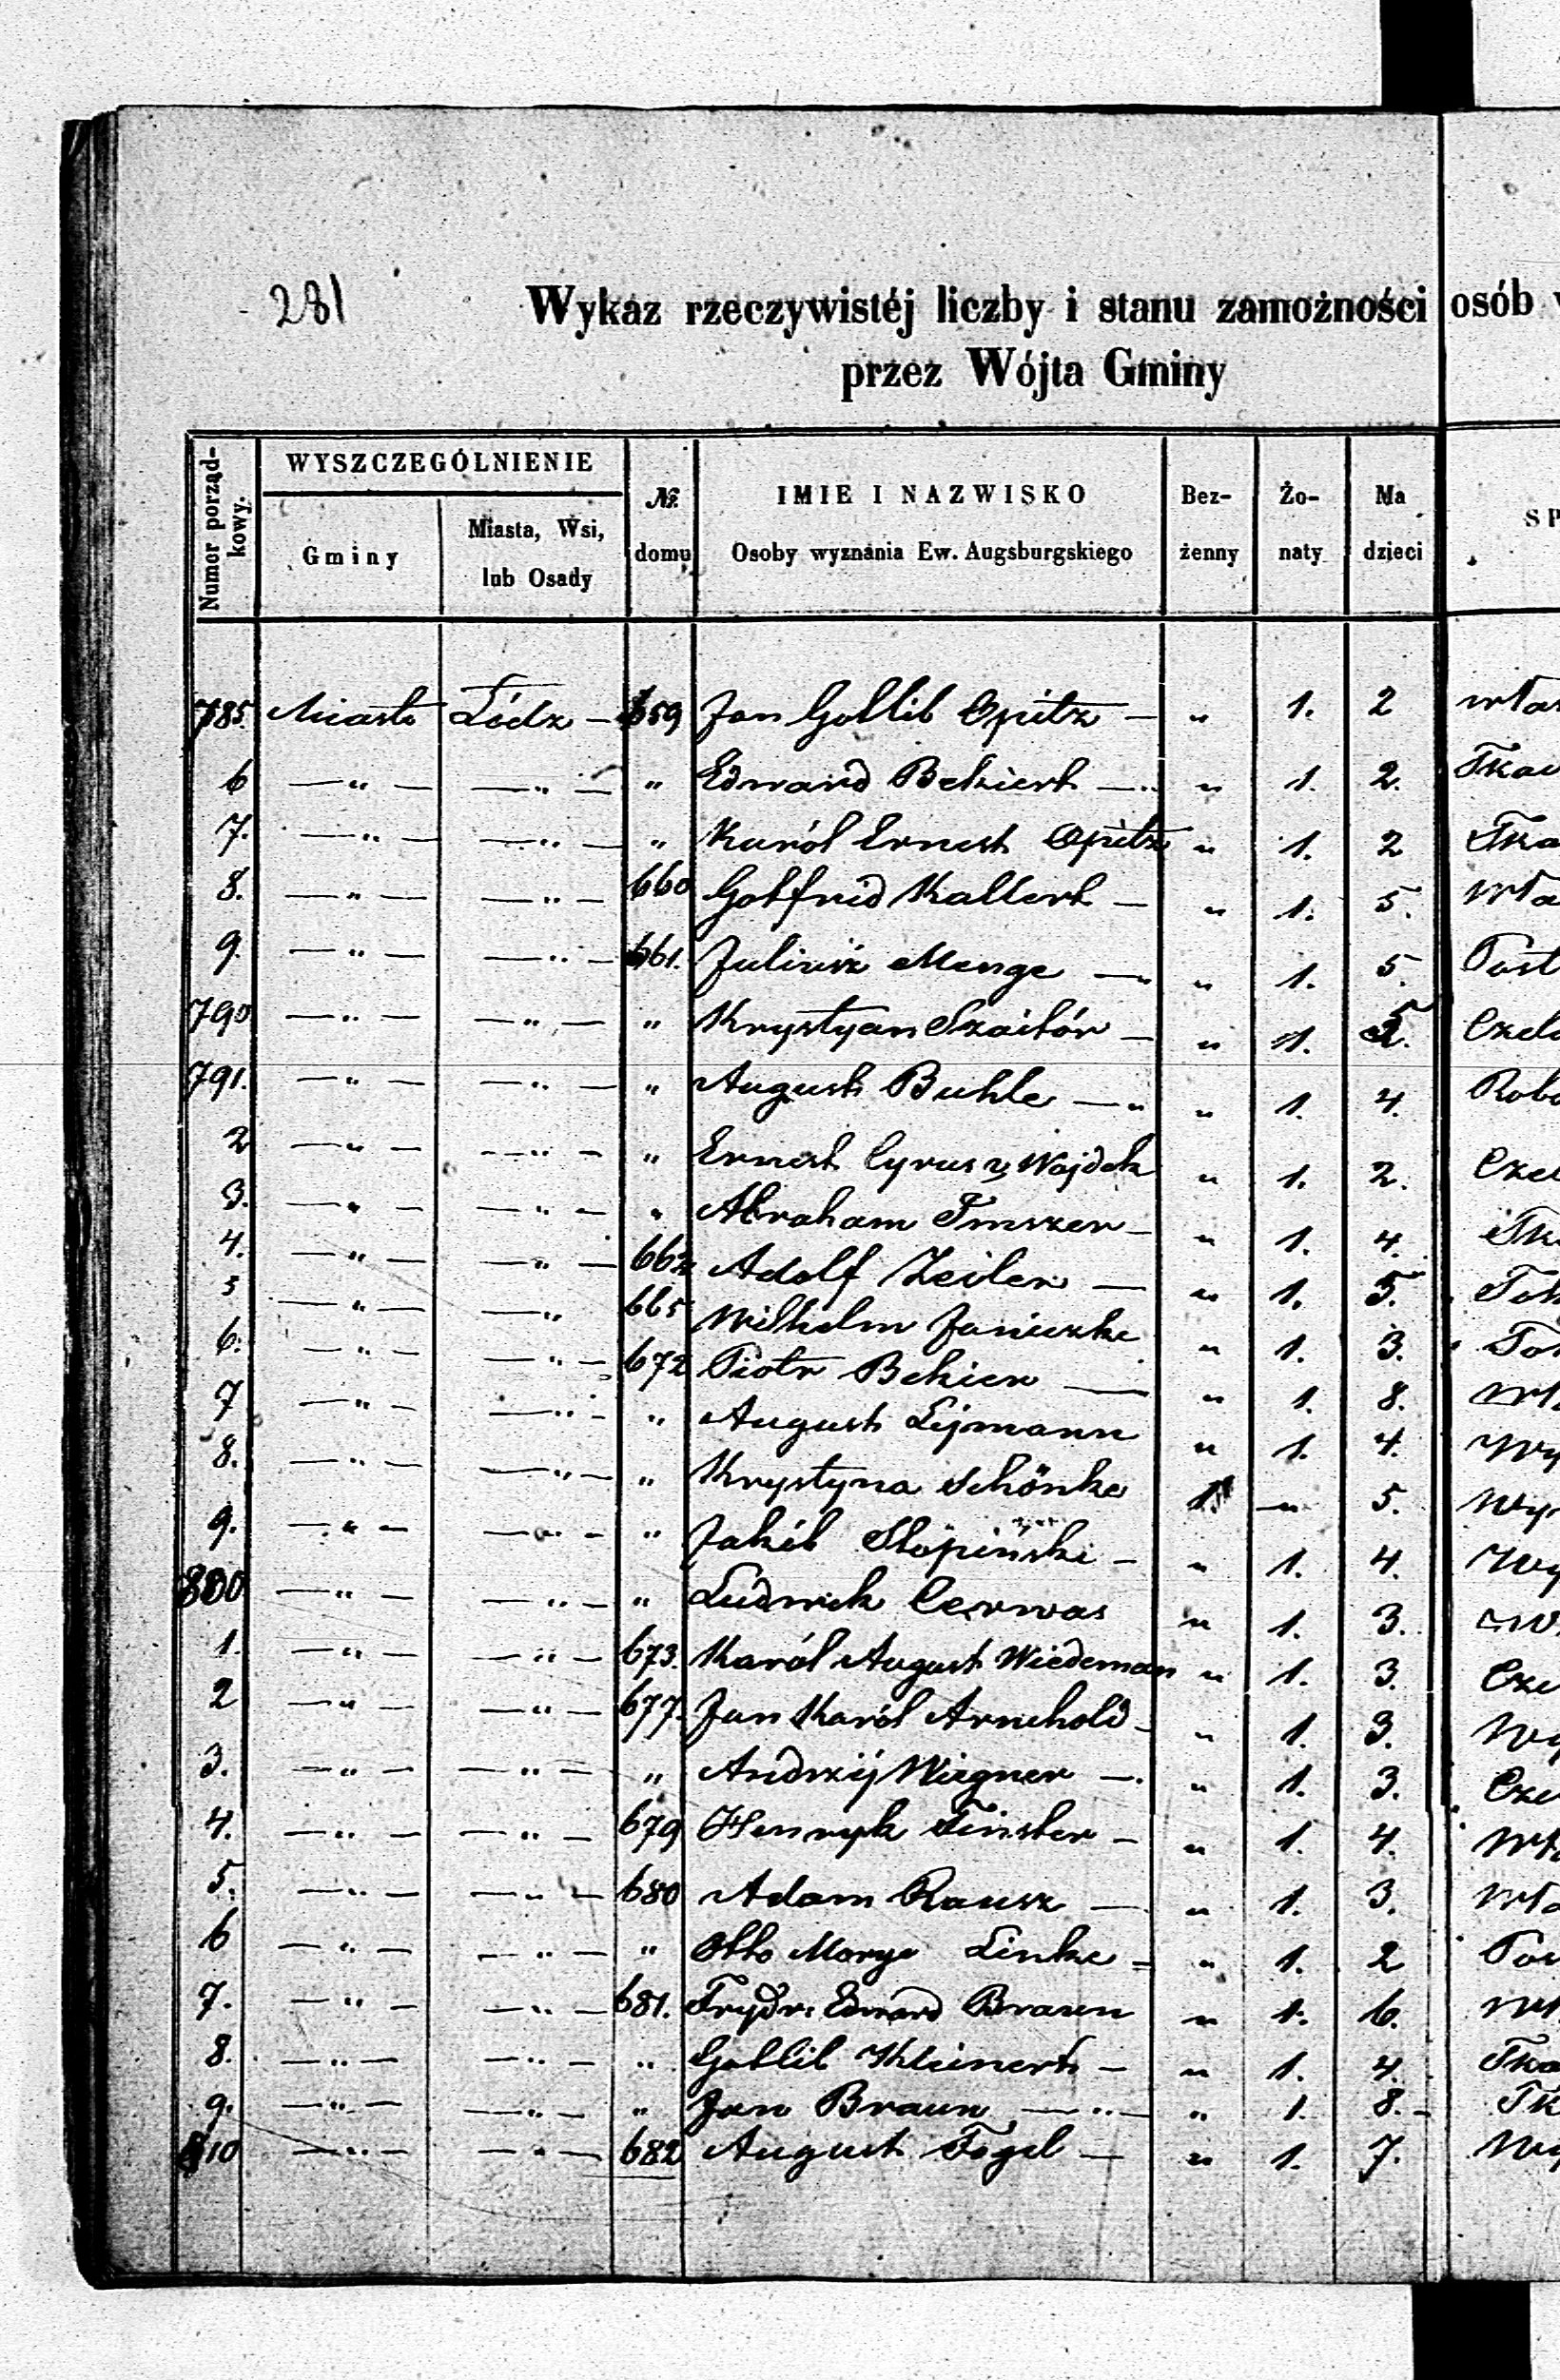 281
Wykaz rzeczywistéj liczby i stanu zamożności osób
przez Wójta Gminy
Numer porządkowy.
WYSZCZEGÓLNIENIE
Gminy
Miasta, Wsi, lub Osady
№ domu
IMIE I NAZWISKO
Osoby wyznania Ew. Augsburgskiego
Bezżenny
Żonaty
Ma dzieci
SP
785. Miasto Łódz — 659 Jan Gottlib Opitz — " 1. 2 wła
6 —"— —"— " Edward Bekiert —" " 1. 2. Tka
7. —"— —"— " Karól Ernest Opitz " 1. 2 Tka
8. —"— —"— 660 Gottfrid Kallert — " 1. 5. wła
9. —"— —"— 661. Juliusz Menge —" " 1. 5. Post
790 —"— —"— " Krystyan — " 1. Czela
791. —"— —"— " August Buhle —" " 1. 4. Robo
2 —"— —"— " Ernest Cyrus Wojdek " 1. 2. Cze
3. —"— —"— " Abraham — " 1. 4. Tk
4. —"— —"— 662 Adolf Zeiler — " 1. 5.
5 —"— —" 665 Wilhelm Janiszke " 1. 3.
6. —"— —"— 672 Piotr Bekier — " 1. 8.
7 —"— —"— " August Lejmann " 1. 4. Wy
8. —"— —"— " Krystyna Schönke 1 —" 5. Wy
9. —"— —"— " Jakób — " 1. 4. Wy
800 —"— —"— " Ludwik Cerwas " 1. 3.
1. —"— —"— 673. Karól August Wiedeman " 1. 3. Cze
2 —"— —"— 677. Jan Karól Arnchold — " 1. 3. Wy
3. —"— —"— " Andrzij Wiegner — " 1. 3. Cze
4. —"— —"— 679 Henryk Finster — " 1. 4. Wł
5. —"— —"— 680 Adam Rausz — " 1. 3. Wła
6 —"— —"— " Otto Moryc Linke = " 1. 2
7. —"— —"— 681. Frydr. Edward Braun " 1. 6. Wł
8. —"— —"— " Gottlib Kleinert — " 1. 4. Tka
9. —"— —"— " Jan Braun —"— " 1. 8. — Tk
810 —"— —"— 682 August Fogel — " 1. 7. Wy